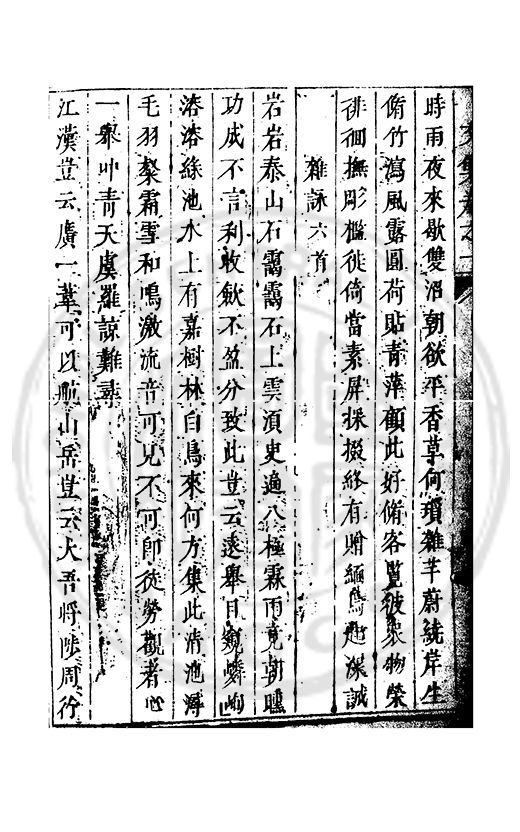 時雨夜來歇雙沼朝欲平香草何瑣雜芊蔚繞岸生
脩竹瀉風露圓荷貼青萍顧此好脩客覽彼衆物榮
徘徊撫彫檻徙倚當素屏採掇終有贈緬焉慰深誠
雜詠六首
岩岩泰山石靄靄石上雲須史適八極霖雨竟朝曛
功成不言利收歛不盈分致此豈云遠舉目窺嶙峋
溶溶綠池水上有嘉樹林白鳥來何方集此清池潯
毛羽粲霜雪和鳴激流音可見不可即徒勞觀者心
一舉冲青天虞羅諒難尋
江漢豈云廣一葦可以航山岳豈云大吾將陟周行